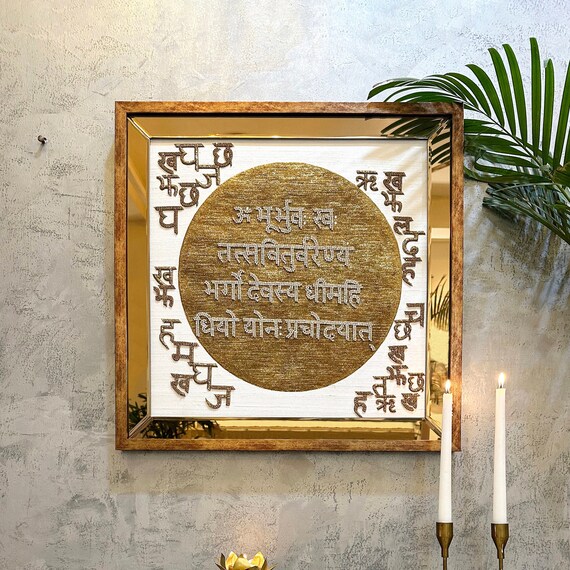 ॐ भूर्भुवः स्वः
तत्सवितुर्वरेण्य
भर्गो देवस्य धीमहि
धियो योनः प्रचोदयात्